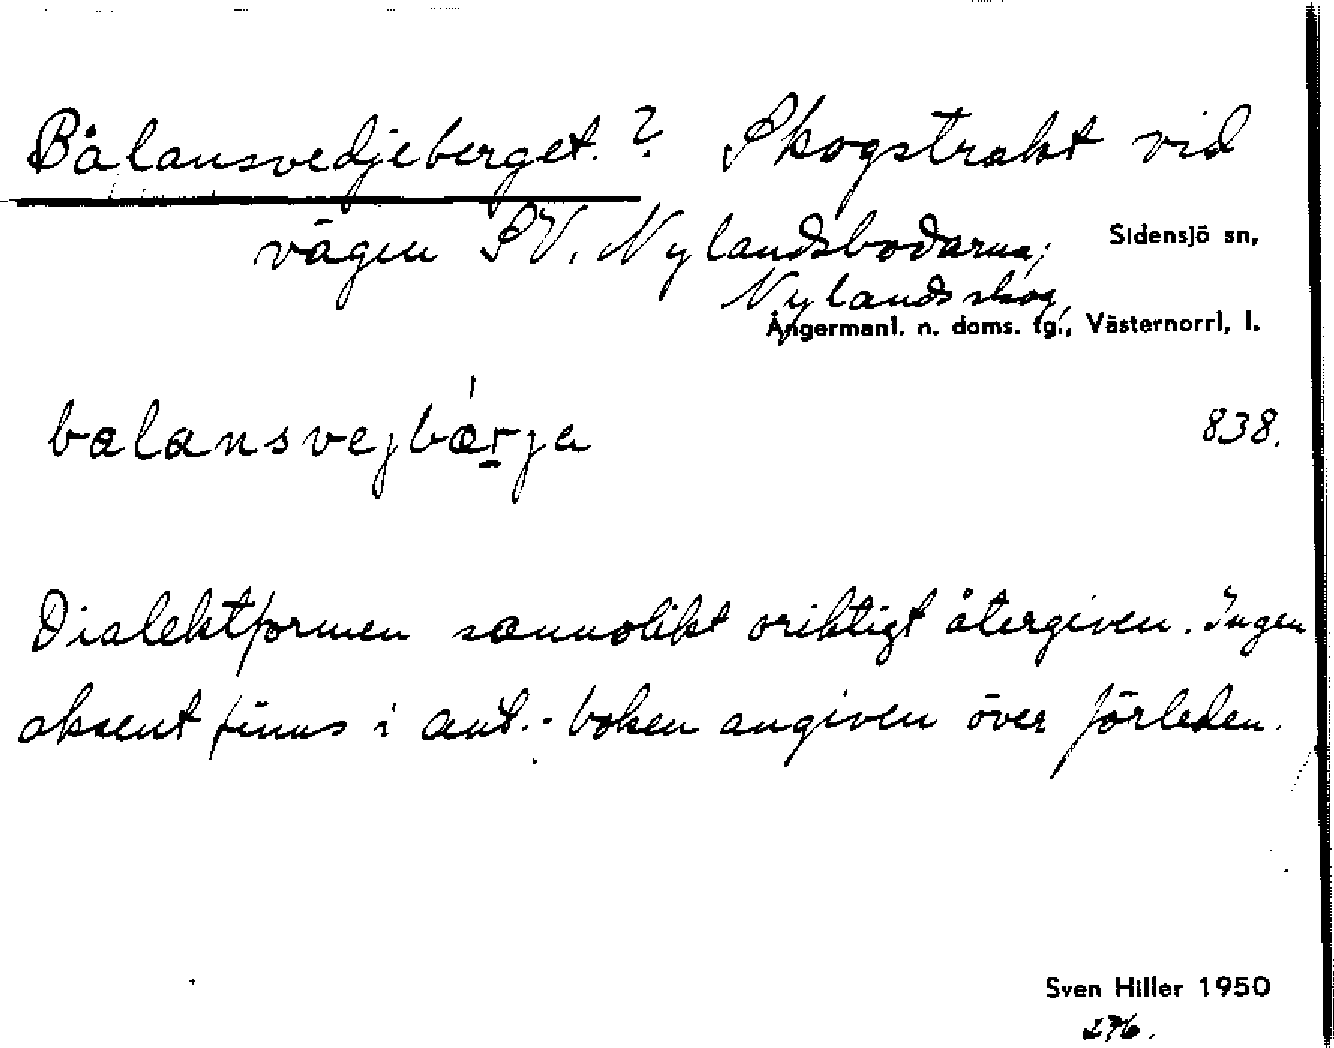 Bålansvedjeberget.? Skogstrakt vid
vägen SV. Nylandsbodarna, Sidensjö sn,
Nylands skog,
Ångermanl. n. doms. tg., Västernorrl, l.
balansvejbǽrja 838.
Dialektformen sannolikt oriktigt återgiven. Ingen
aksent finns i ant.-boken angiven över förleden.
Sven Hiller 1950
276.